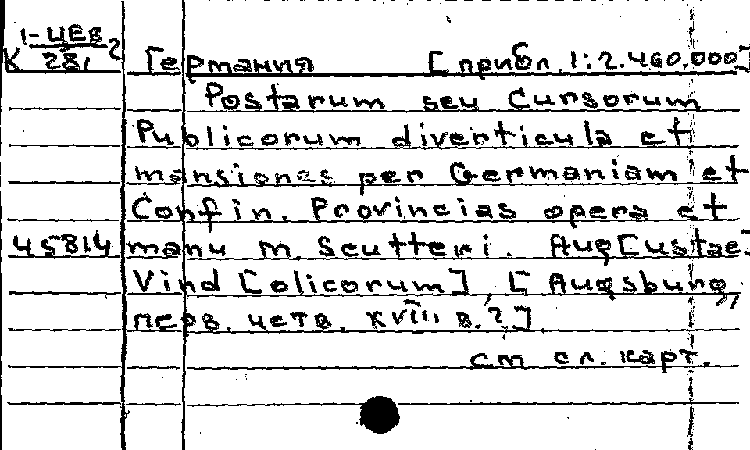 К 1-ЦЕВ 2
28,
Германия [прибл. 1:2.460.000]
Postarum seu Cursorum
Publicorum diverticula et
mansiones per Germaniam et
Confin. Provincias opera et
45814 manu M. Scutteri. Aug[ustae]
Vind[elicorum], [Augsburg,
перв. четв. XVIII в.?].
см сл. карт.